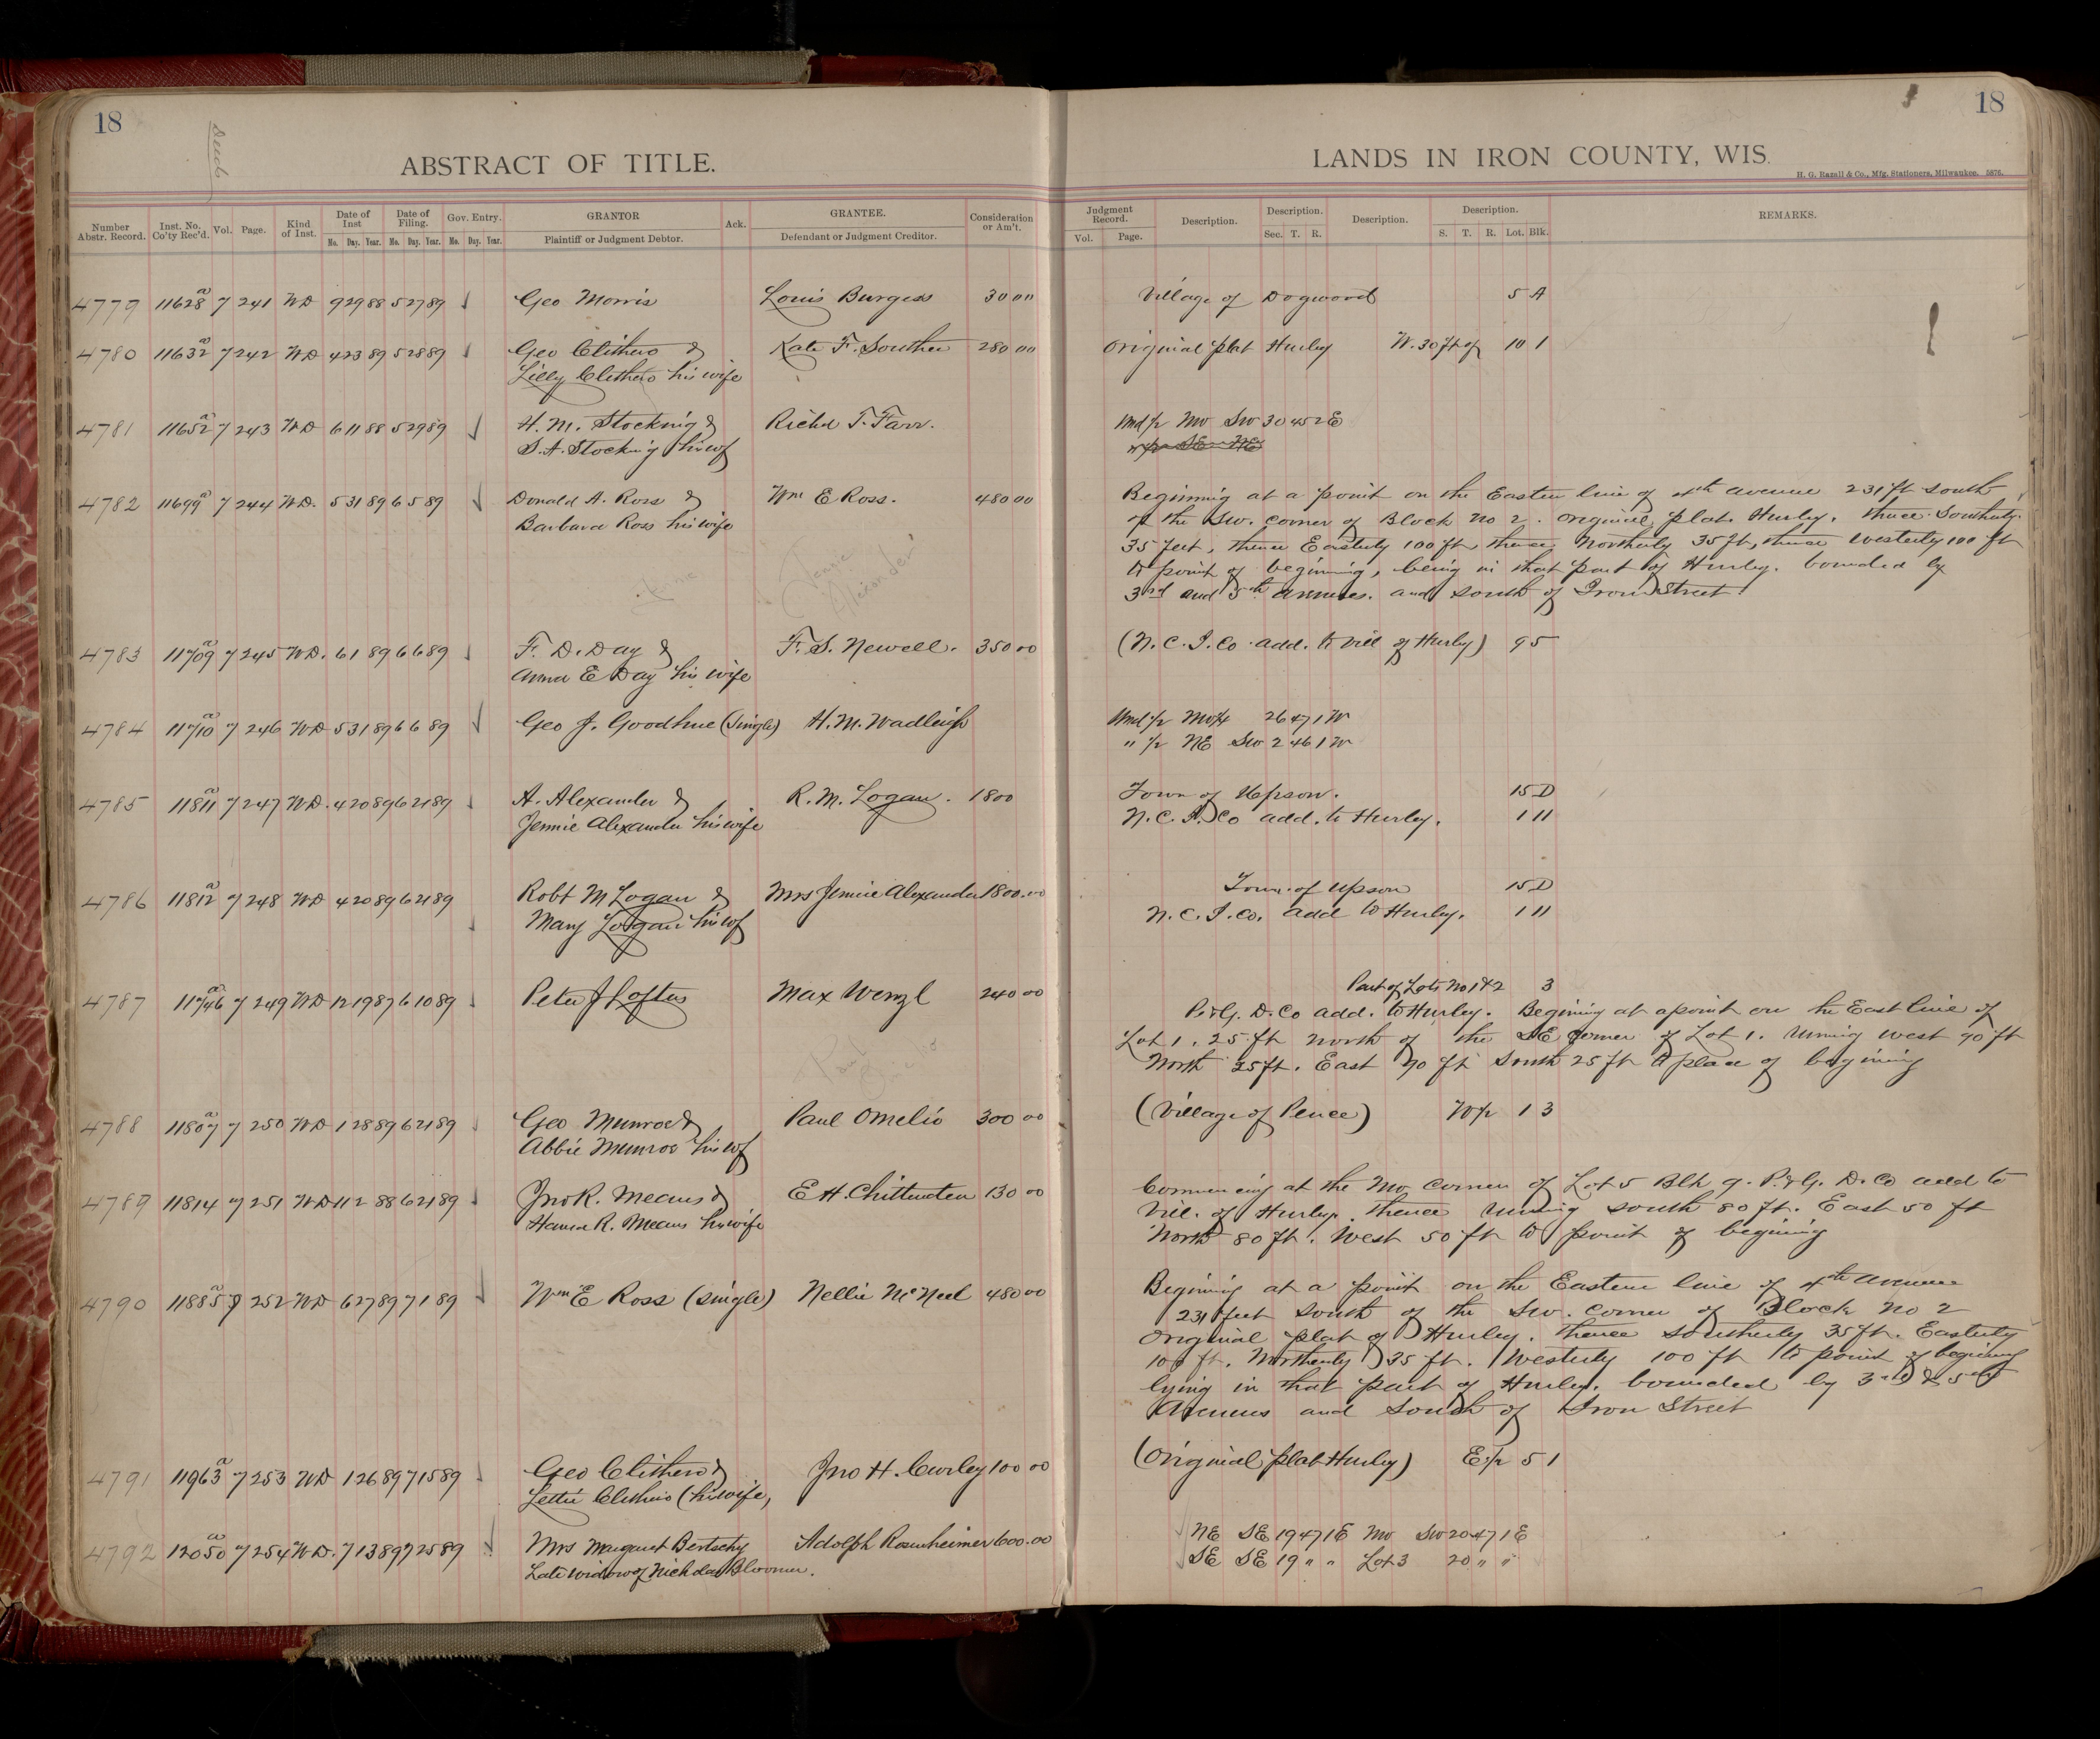 18
Deeds
ABSTRACT OF TITLE.
Number Abstr. Record. Inst. No. Co'ty Rec'd. Vol. Page. Kind of Inst. Date of Inst Mo. Day. Year. Date of Filing. Mo. Day. Year. Gov. Entry. Mo. Day. Year. GRANTOR Plaintiff or Judgment Debtor. Ack. GRANTEE. Defendant or Judgment Creditor. Consideration or Am't.
4779 11628 a 7 241 WD 9 29 88 5 27 89 Geo Morris Louis Burgess 30 00
4780 11632 a 7 242 WD 4 23 89 5 28 89 Geo Clithero & Kate F. Souther 280 00
Lilly Clithero his wife
4781 11652 a 7 243 WD 6 11 88 5 29 89 H. M. Stocking & Richd T. Farr.
S. A. Stocking his wf
4782 11699 a 7 244 WD. 5 31 89 6 5 89 Donald A. Ross & Wm E Ross. 480 00
Barbara Ross his wife
Jennie
Alexander
4783 11709 a 7 245 WD. 6 1 89 6 6 89 F. D. Day & F. S. Newell. 350 00
Anna E Day his wife
4784 11710 a 7 246 WD 5 31 89 6 6 89 Geo J. Goodhue (single) H. M. Wadleigh
4785 11811 a 7 247 WD. 4 20 89 6 21 89 A. Alexander & R. M. Logan. 1800
Jennie Alexander his wife
4786 11812 a 7 248 WD 4 20 89 6 21 89 Robt M Logan & Mrs Jennie Alexander 1800.00
Mary Logan his wf
4787 11746 a 7 249 WD 12 19 87 6 10 89 Peter J Loftus Max Wenzl 240 00
Paul
4788 11807 a 7 250 WD 1 28 89 6 21 89 Geo Munroe & Paul Omelio 300 00
Abbie Munroe his wf
4789 11814 7 251 WD 11 2 88 6 21 89 Jno R. Means & E H. Chittenden 130 00
R. Means his wife
4790 11885 a 7 252 WD 6 27 89 7 1 89 Wm E Ross (single) Nellie McNeel 480 00
4791 11963 a 7 253 WD 1 26 89 7 15 89 Geo Clithero & Jno H. Curley 100 00
Lettie Clithero (his wife,
4792 12050 a 7 254 WD. 7 13 89 7 25 89 Mrs Margaret Bertschy Adolph Rosenheimer 600.00
Late widow of Nicholas Bloomer.
18
LANDS IN IRON COUNTY, WIS.
H. G. Razall & Co., Mfg. Stationers, Milwaukee. 5876.
Judgment Record. Vol. Page. Description. Description. Sec. T. R. Description. Description. S. T. R. Lot. Blk. REMARKS.
Village of Dogwood 5 A
Original plat Hurley W. 30 ft of 10 1
Und 1/2 NW SW 30 45 2 E
Beginning at a point on the Eastern line of 4th avenue 231 ft south
of the SW. corner of Block No 2. original plat Hurley. thence Southerly
35 feet, thence Easterly 100 ft, thence Northerly 35 ft, thence Westerly 100 ft
to point of beginning, being in that part of Hurley. bounded by
3rd and 5th avenues. and south of Iron Street
(N. C. I. Co. add. to Vill of Hurley) 9 5
Und 1/2 NW1/4 26 47 1 W
" 1/2 NE SW 2 46 1 W
Town of Upson. 15 D
N. C. I. Co add. to Hurley. 1 11
Town of Upson 15 D
N. C. I. Co. add to Hurley. 1 11
Part of Lots No 1 & 2 3
P. & G. D. Co add. to Hurley. Begining at a point on the East line of
Lot 1. 25 ft north of the SE corner of Lot 1. runing west 90 ft
North 25 ft. East 90 ft South 25 ft to place of begining
(Village of Pence) W 1/2 1 3
Commencing at the NW corner of Lot 5 Blk 9. P. & G. D. Co add to
Vill. of Hurley. thence running south 80 ft. East 50 ft
North 80 ft. West 50 ft to point of begining
Begining at a point on the Eastern line of 4th avenue
231 feet south of the SW. corner of Block No 2
Original plat of Hurley. thence southerly 35 ft. Easterly
100 ft. Northerly 35 ft. Westerly 100 ft to point of begining
lying in that part of Hurley. bounded by 3rd & 5th
Avenues and south of Iron Street
(Original plat Hurley) E 1/2 5 1
NE SE 19 47 1 E NW SW 20 47 1 E
SE SE 19 " " Lot 3 20 " "